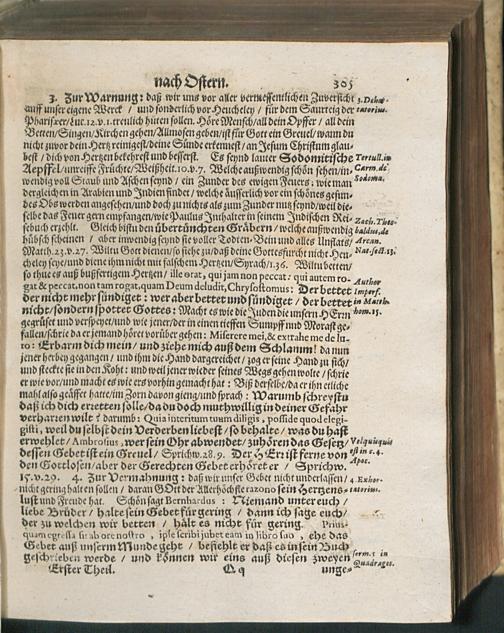 nach Ostern. 305
3. Zur Warnung: daß wir uns vor aller vermessentlichen Zuversicht
auff unser eigene Werck / und sonderlich vor Heucheley / für dem Saurteig der
Phariseer / Luc. 12. v. 1. treulich hüten sollen. Höre Mensch / all dein Opffer / all dein
Betten / Singen / Kirchen gehen / Allmosen geben / ist für Gott ein Greuel / wann du
nicht zuvor dein Hertz reinigest / deine Sünde erkennest / an Jesum Christum glau-
best / dich von Hertzen bekehrest und besserst. Es seynd lauter Sodomitische
Aepffel / unreiffe Früchte / Weißheit. 10. v. 7. Welche außwendig schön sehen / in-
wendig voll Staub und Aschen seynd / ein Zunder des ewigen Feuers: wie man
dergleichen in Arabien und Indien findet / welche äusserlich vor ein schönes gesun-
des Obs werden angesehen / und doch zu nichts als zum Zunder nutz seynd / weil die-
selbe das Feuer gern empfangen / wie Paulus Inthalter in seinem Indischen Rei-
sebuch erzehlt. Gleich bist du den übertünchten Gräbern / welche außwendig
hübsch scheinen / aber inwendig seynd sie voller Todten-Bein und alles Unflats /
Matth. 23. v. 27. Wiltu Gott dienen / so siehe zu / daß deine Gottesfurcht nicht Heu-
cheley seye / und diene ihm nicht mit falschem Hertzen / Syrach / 1. 36. Wiltu betten /
so thue es auß bußfertigem Hertzen / ille orat, qui jam non peccat: qui autem ro-
gat & peccat, non tam rogat, quam Deum deludit, Chrysostomus: Der bettet
der nicht mehr sündiget: wer aber bettet und sündiget / der bettet
nicht / sondern spottet Gottes: Macht es wie die Juden die unsern HErrn
gegrüset und verspeyet / und wie jener / der in einen tieffen Sumpff und Morast ge-
fallen / schrie da er jemand höret vorüber gehen: Miserere mei, & extrahe me de lu-
to: Erbarm dich mein / und ziehe mich auß dem Schlamm! da nun
jener herbey gegangen / und ihm die Hand dargereichet / zog er seine Hand zu sich /
und steckte sie in den Koht: und weil jener wieder seines Wegs gehen wolte / schrie
er wie vor / und macht es wie ers vorhin gemacht hat: Biß derselbe / da er ihn etliche
mahl also geäffet hatte / im Zorn davon gieng / und sprach: Warumb schreystu
daß ich dich erretten solle / da du doch muthwillig in deiner Gefahr
verharren wilt? darumb: Quia interitum tuum diligis, posside quod elegi-
gisti, weil du selbst dein Verderben liebest / so behalte / was du hast
erwehlet / Ambrosius, wer sein Ohr abwendet / zuhören das Gesetz /
dessen Gebet ist ein Greuel / Sprichw. 28. 9. Der HErr ist ferne von
den Gottlosen / aber der Gerechten Gebet erhöret er / Sprichw.
15. v. 29. 4. Zur Vermahnung: daß wir unser Gebet nicht unterlassen /
nicht gering halten sollen / daran GOtt der Allerhöchste sein Hertzens-
lust und Freude hat. Schön sagt Bernhardus: Niemand unter euch /
liebe Brüder / halte sein Gebet für gering / dann ich sage euch /
der zu welchen wir betten / hält es nicht für gering. Prius-
quam egressa sit ab ore nostro, ipse scribi jubet eam in libro suo, ehe das
Gebet auß unserm Munde geht / befiehlt er daß es in sein Buch
geschrieben werde / und können wir eins auß diesen zweyen
Erster Theil. Q q unge-
3. Deho-
rtatorius.
Tertull. in
Carm. de
Sodoma.
Zach. Theo-
baldus, de
Arcan.
Nat. sect. 13.
Author
Imperf.
in Matth.
hom. 15.
4. Exhor-
tatorius.
serm. 5. in
Quadrages.